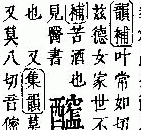 韻補叶常如切
茲德女家世不
補苦酒也
見醫書
也 又集韻莫
又莫八切音